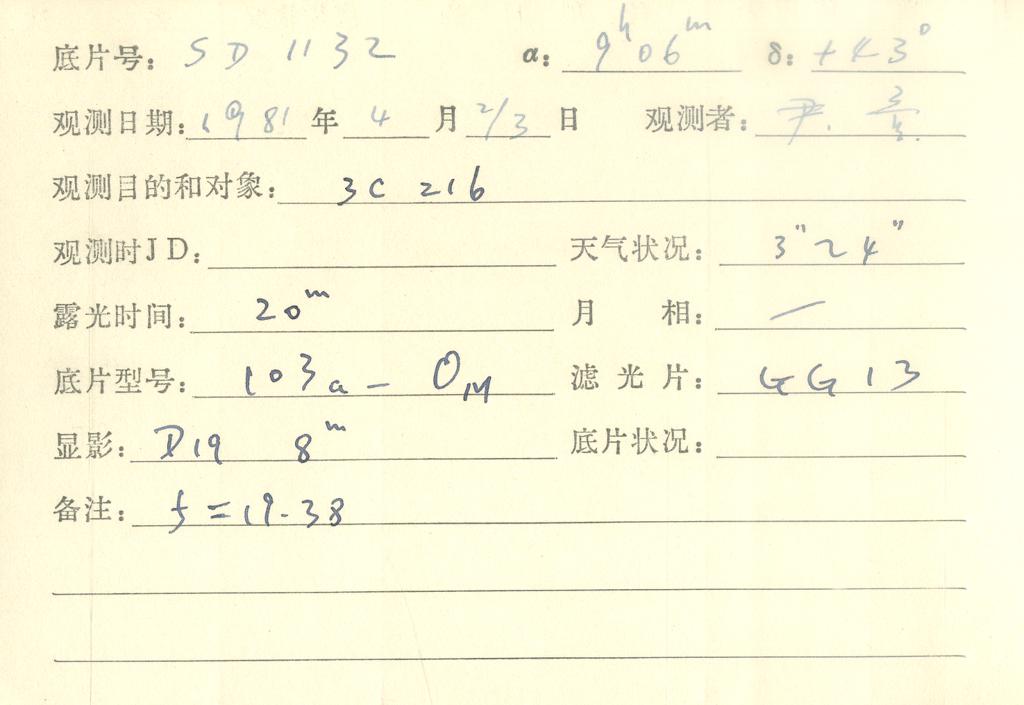 底片号： SD 1132 α： 9ʰ 06ᵐ δ： +43°
观测日期： 1981 年 4 月 2/3 日 观测者： 尹.
观测目的和对象： 3C 216
观测时JD： 天气状况： 3"~4"
露光时间： 20ᵐ 月 相： —
底片型号： 103a-O 滤光片： GG13
显影： D19 8ᵐ 底片状况：
备注： f=19.38